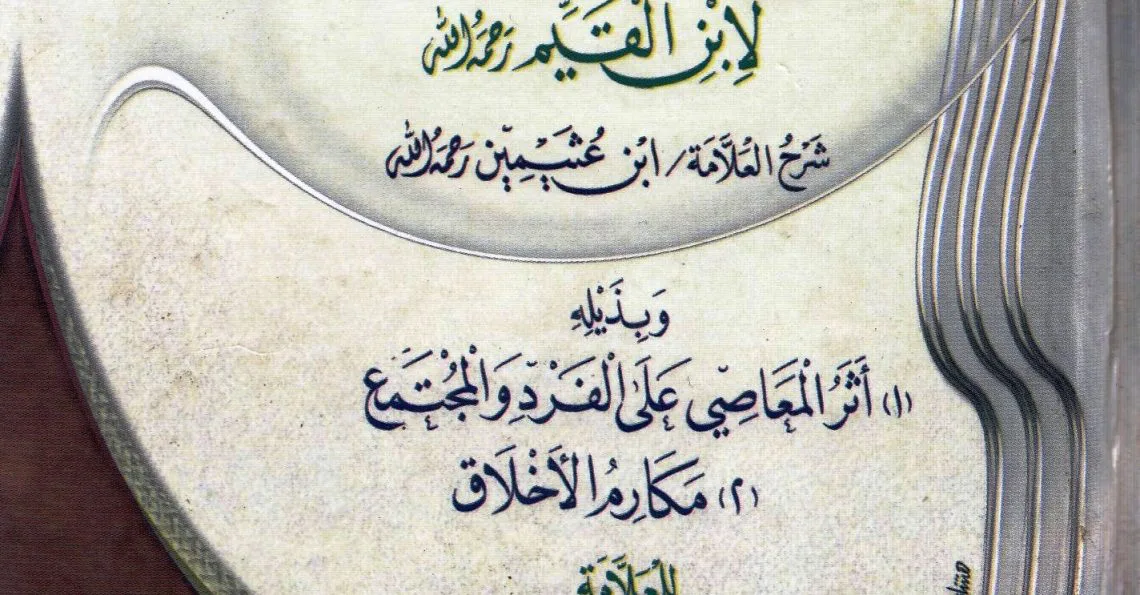 لِابْنِ الْقَيِّمِ رَحِمَهُ اللهُ
شَرْحُ الْعَلَّامَةِ / ابْنِ عُثَيْمِين رَحِمَهُ اللهُ
وَبِذَيْلِهِ
(١) أَثَرُ الْمَعَاصِي عَلَى الْفَرْدِ وَالْمُجْتَمَعِ
(٢) مَكَارِمُ الْأَخْلَاقِ
لِلْعَلَّامَةِ